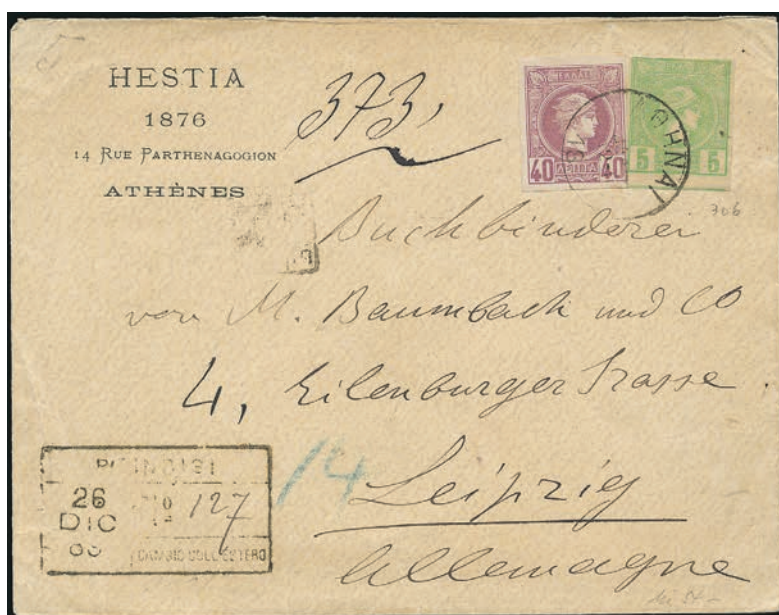 HESTIA
1876
14 RUE PARTHENAGOGION
ATHÈNES
373,
ΕΛΛΑΣ
40 ΛΕΠΤΑ 40
5 5
ΑΘΗΝΑΙ
306
Buchbinderei
von M. Baumbach und CO
4, Eilenburger Strasse.
Leipzig
Allemagne
14
26
DIC
127
CAMBIO COLL'ESTERO